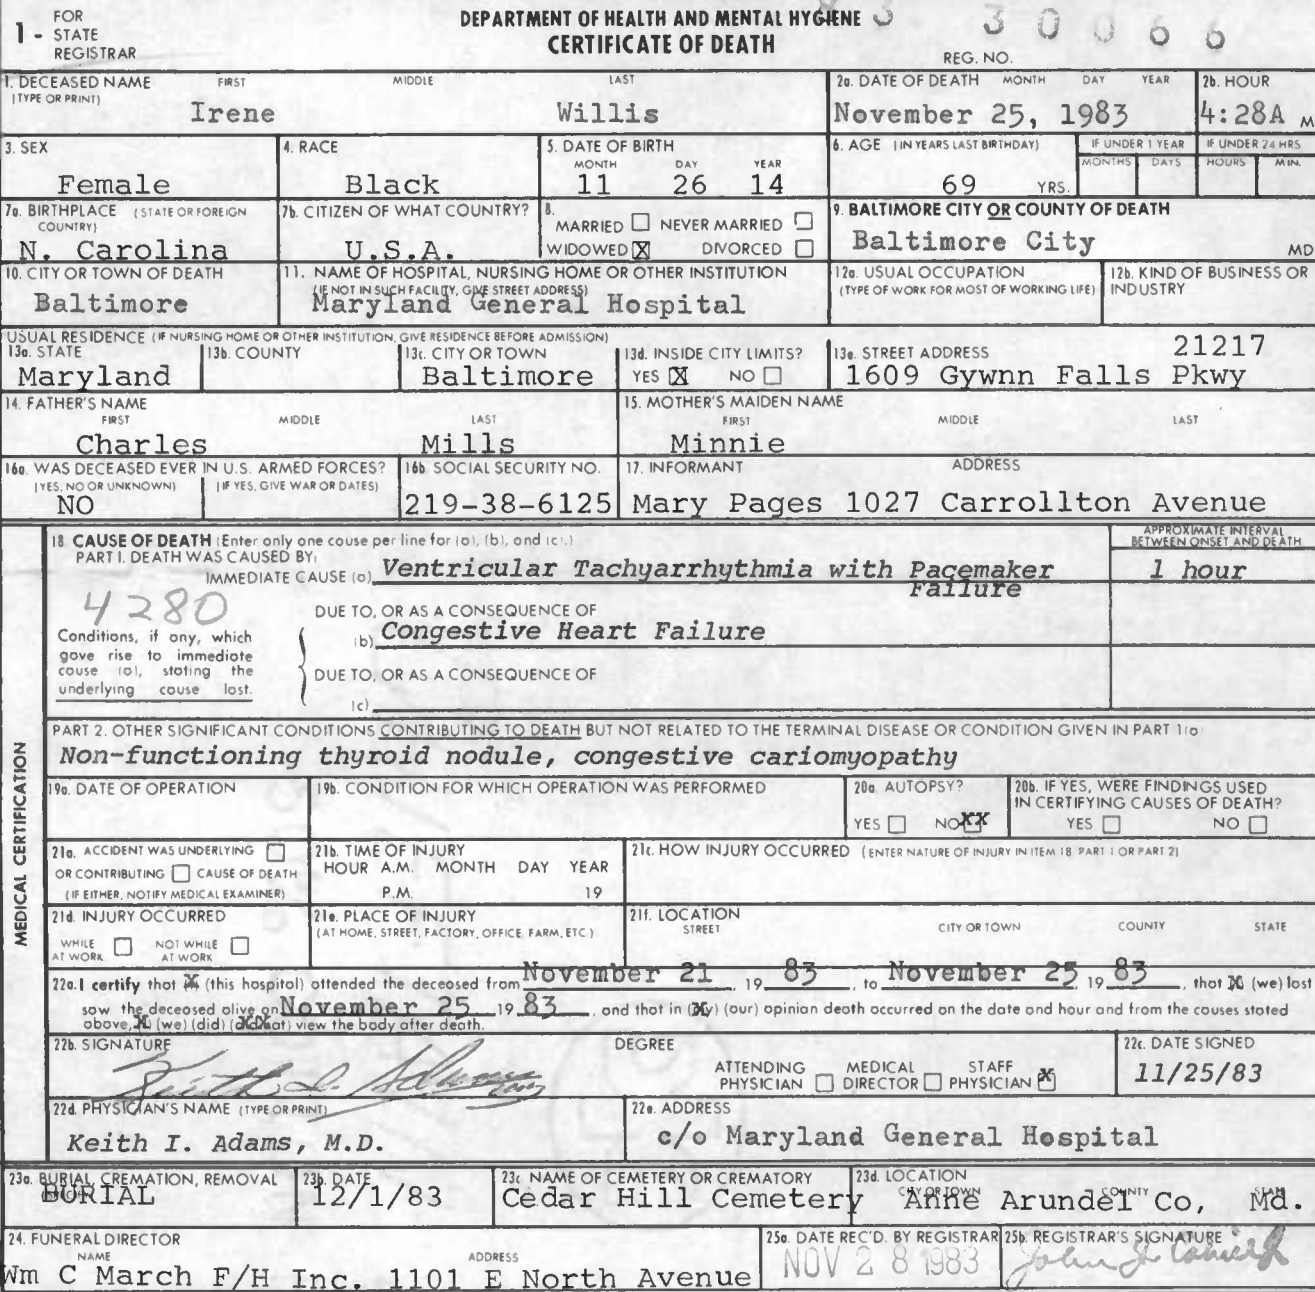 1 - FOR STATE REGISTRAR
DEPARTMENT OF HEALTH AND MENTAL HYGIENE
CERTIFICATE OF DEATH
3 30066
REG. NO.
1. DECEASED NAME FIRST MIDDLE LAST
(TYPE OR PRINT)
Irene Willis
2a. DATE OF DEATH MONTH DAY YEAR
November 25, 1983
2b. HOUR
4:28A M
3. SEX
Female
4. RACE
Black
5. DATE OF BIRTH
MONTH DAY YEAR
11 26 14
6. AGE (IN YEARS LAST BIRTHDAY)
69 YRS.
IF UNDER 1 YEAR
MONTHS DAYS
IF UNDER 24 HRS
HOURS MIN.
7a. BIRTHPLACE (STATE OR FOREIGN COUNTRY)
N. Carolina
7b. CITIZEN OF WHAT COUNTRY?
U.S.A.
8.
MARRIED ☐ NEVER MARRIED ☐
WIDOWED ☒ DIVORCED ☐
9. BALTIMORE CITY OR COUNTY OF DEATH
Baltimore City MD
10. CITY OR TOWN OF DEATH
Baltimore
11. NAME OF HOSPITAL, NURSING HOME OR OTHER INSTITUTION
(IF NOT IN SUCH FACILITY, GIVE STREET ADDRESS)
Maryland General Hospital
12a. USUAL OCCUPATION
(TYPE OF WORK FOR MOST OF WORKING LIFE)
12b. KIND OF BUSINESS OR INDUSTRY
USUAL RESIDENCE (IF NURSING HOME OR OTHER INSTITUTION, GIVE RESIDENCE BEFORE ADMISSION)
13a. STATE
Maryland
13b. COUNTY
13c. CITY OR TOWN
Baltimore
13d. INSIDE CITY LIMITS?
YES ☒ NO ☐
13e. STREET ADDRESS 21217
1609 Gywnn Falls Pkwy
14. FATHER'S NAME
FIRST MIDDLE LAST
Charles Mills
15. MOTHER'S MAIDEN NAME
FIRST MIDDLE LAST
Minnie
16a. WAS DECEASED EVER IN U.S. ARMED FORCES?
(YES, NO OR UNKNOWN) (IF YES, GIVE WAR OR DATES)
NO
16b. SOCIAL SECURITY NO.
219-38-6125
17. INFORMANT ADDRESS
Mary Pages 1027 Carrollton Avenue
MEDICAL CERTIFICATION
18. CAUSE OF DEATH (Enter only one cause per line for (a), (b), and (c).)
PART I. DEATH WAS CAUSED BY:
APPROXIMATE INTERVAL BETWEEN ONSET AND DEATH
IMMEDIATE CAUSE (a) Ventricular Tachyarrhythmia with Pacemaker Failure
1 hour
4280
Conditions, if any, which gave rise to immediate cause (a), stating the underlying cause last.
DUE TO, OR AS A CONSEQUENCE OF
(b) Congestive Heart Failure
DUE TO, OR AS A CONSEQUENCE OF
(c)
PART 2. OTHER SIGNIFICANT CONDITIONS CONTRIBUTING TO DEATH BUT NOT RELATED TO THE TERMINAL DISEASE OR CONDITION GIVEN IN PART 1(a)
Non-functioning thyroid nodule, congestive cariomyopathy
19a. DATE OF OPERATION
19b. CONDITION FOR WHICH OPERATION WAS PERFORMED
20a. AUTOPSY?
YES ☐ NO XX
20b. IF YES, WERE FINDINGS USED IN CERTIFYING CAUSES OF DEATH?
YES ☐ NO ☐
21a. ACCIDENT WAS UNDERLYING ☐
OR CONTRIBUTING ☐ CAUSE OF DEATH
(IF EITHER, NOTIFY MEDICAL EXAMINER)
21b. TIME OF INJURY
HOUR A.M. MONTH DAY YEAR
P.M. 19
21c. HOW INJURY OCCURRED (ENTER NATURE OF INJURY IN ITEM 18 PART 1 OR PART 2)
21d. INJURY OCCURRED
WHILE AT WORK ☐ NOT WHILE AT WORK ☐
21e. PLACE OF INJURY
(AT HOME, STREET, FACTORY, OFFICE, FARM, ETC.)
21f. LOCATION
STREET CITY OR TOWN COUNTY STATE
22a. I certify that X (this hospital) attended the deceased from November 21 19 83, to November 25, 19 83, that X (we) last
saw the deceased alive on November 25 19 83, and that in (my) (our) opinion death occurred on the date and hour and from the causes stated
above, X (we) (did) (did not) view the body after death.
22b. SIGNATURE DEGREE
Keith I. Adams
ATTENDING PHYSICIAN ☐ MEDICAL DIRECTOR ☐ STAFF PHYSICIAN ☒
22c. DATE SIGNED
11/25/83
22d. PHYSICIAN'S NAME (TYPE OR PRINT)
Keith I. Adams, M.D.
22e. ADDRESS
c/o Maryland General Hospital
23a. BURIAL, CREMATION, REMOVAL
BURIAL
23b. DATE
12/1/83
23c. NAME OF CEMETERY OR CREMATORY
Cedar Hill Cemetery
23d. LOCATION
CITY OR TOWN COUNTY STATE
Anne Arundel Co, Md.
24. FUNERAL DIRECTOR
NAME ADDRESS
Wm C March F/H Inc. 1101 E North Avenue
25a. DATE REC'D. BY REGISTRAR
NOV 28 1983
25b. REGISTRAR'S SIGNATURE
John J.